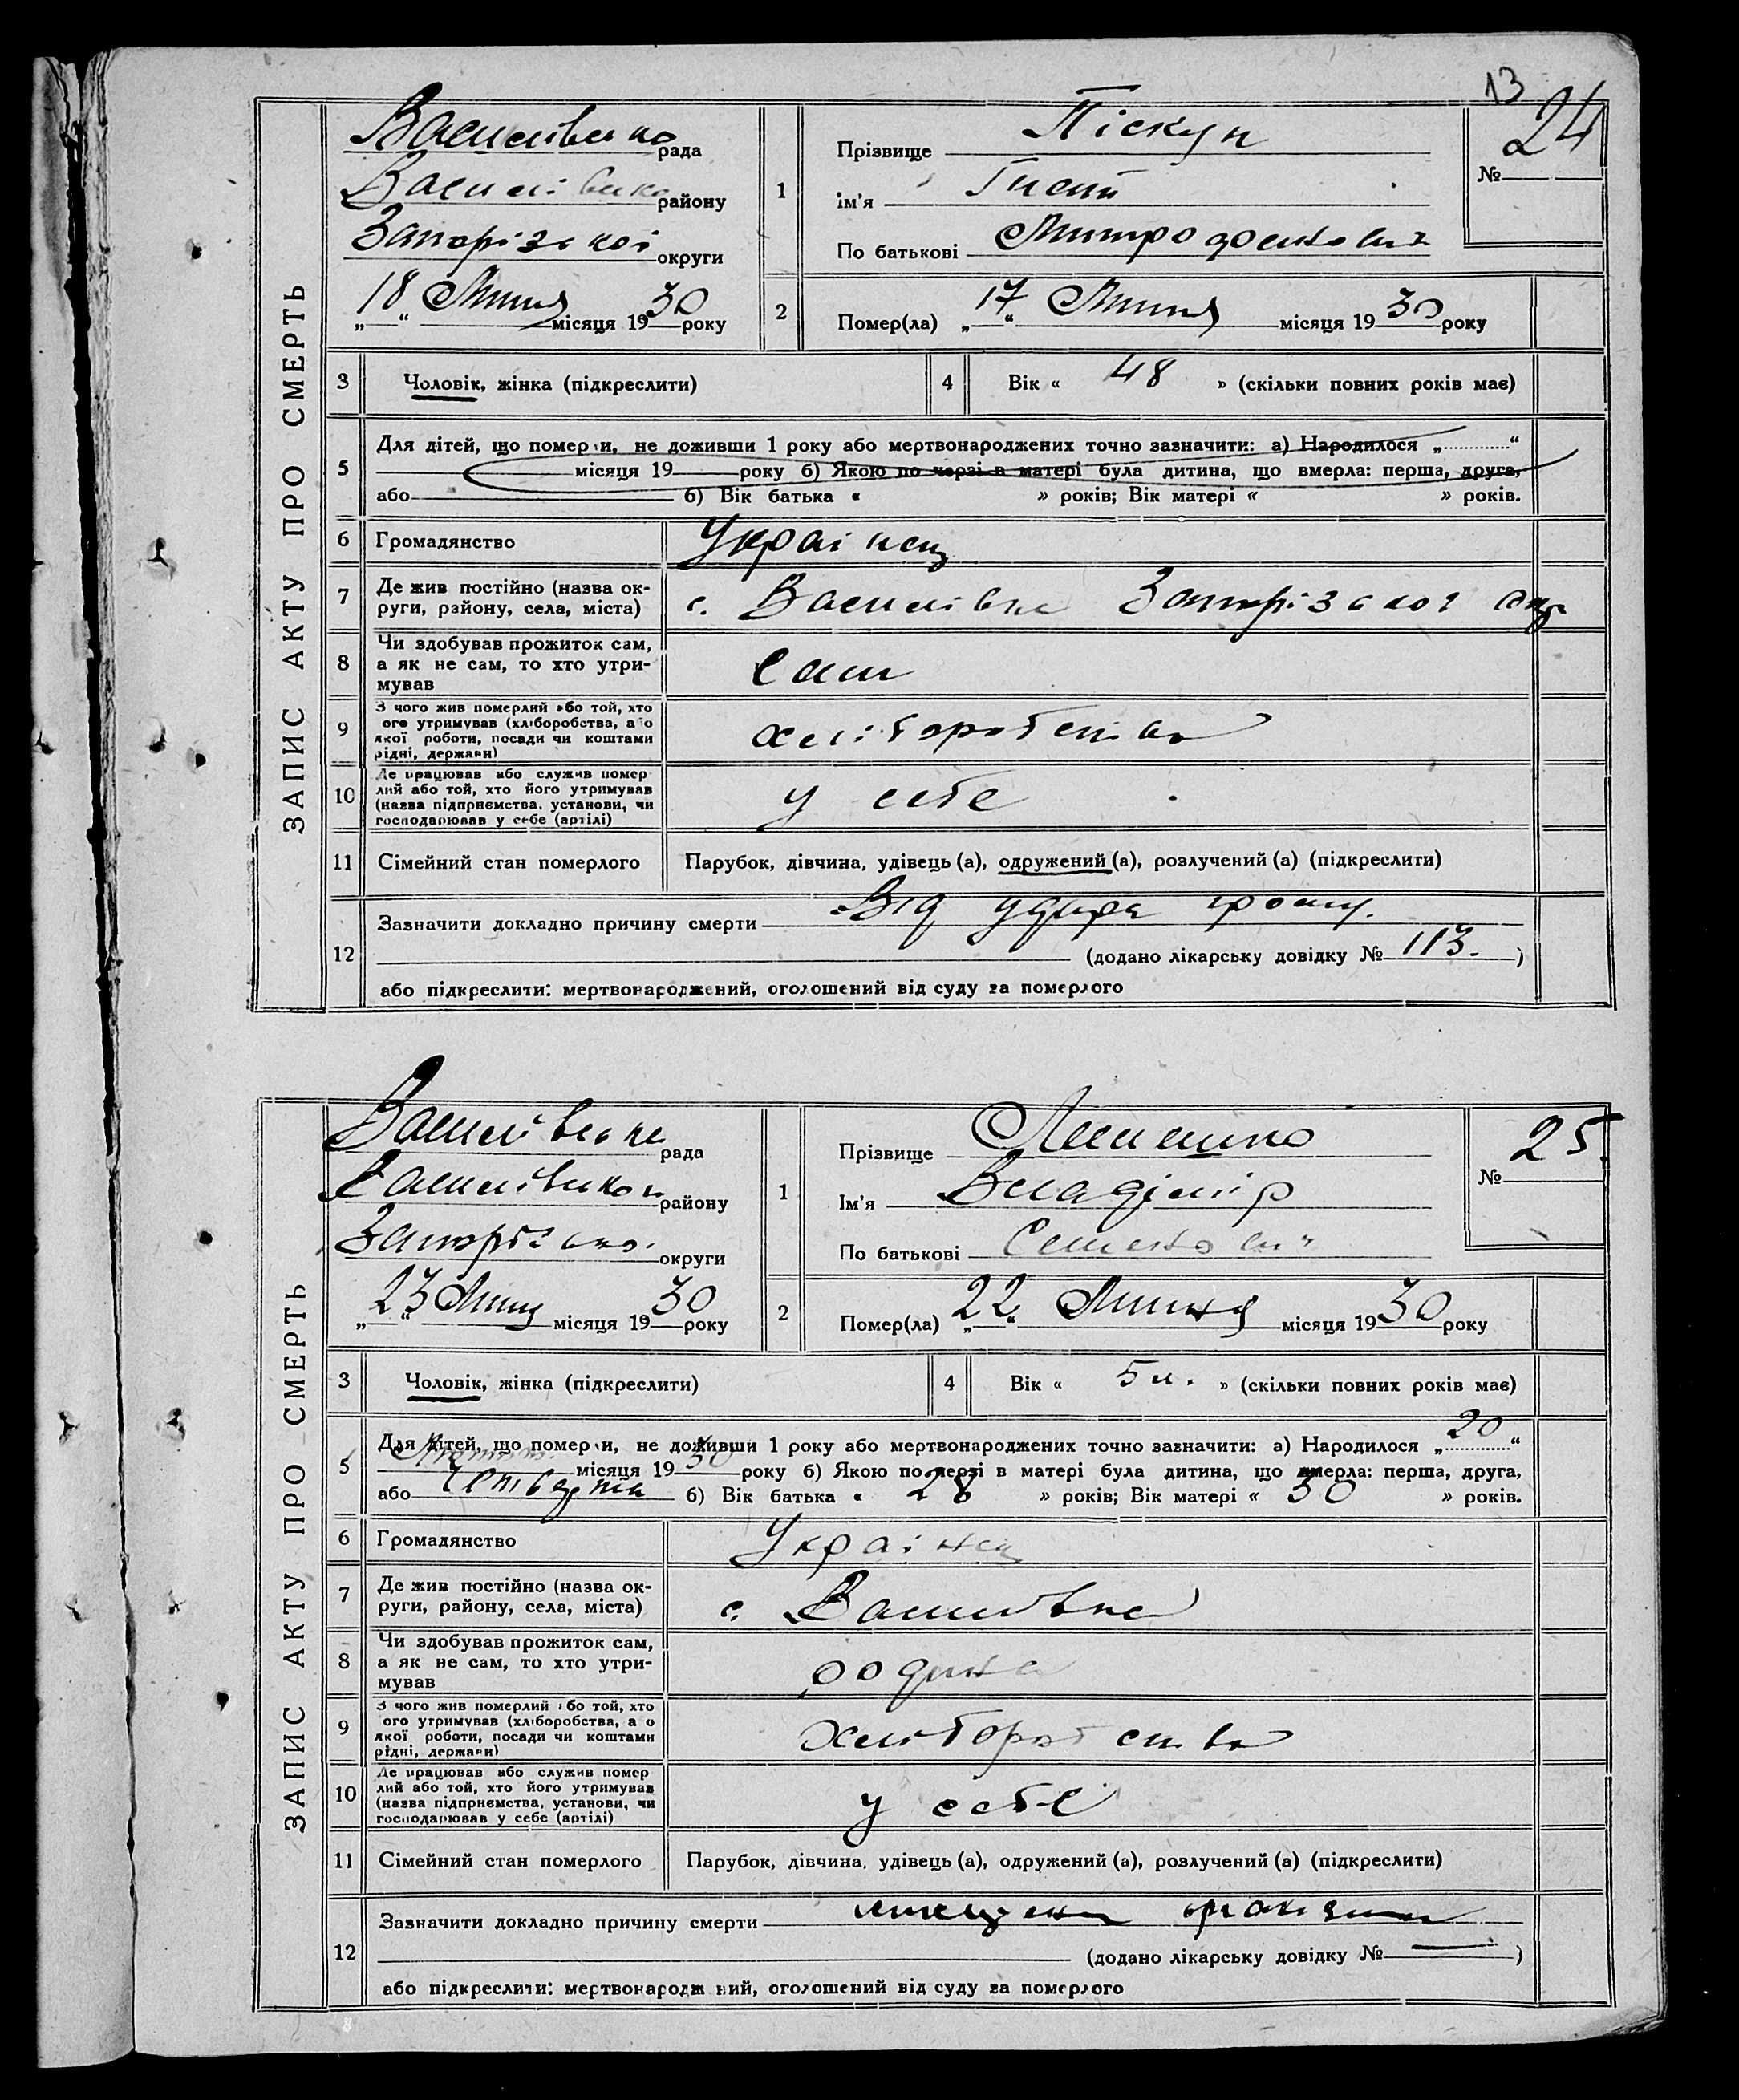 13
ЗАПИС АКТУ ПРО СМЕРТЬ
Василівська рада
Василівська району
Запорізької округи
„18“ Липня місяця 1930 року
1
Прізвище Піскун
ім'я Гнат
По батькові
№ 24
2
Помер(ла) „17“ Липня місяця 1930 року
3
Чоловік, жінка (підкреслити)
4
Вік « 48 » (скільки повних років має)
5
Для дітей, що померли, не доживши 1 року або мертвонароджених точно зазначити: а) Народилося „ “
місяця 19 року б) Якою по черзі в матері була дитина, що вмерла: перша, друга,
або б) Вік батька « » років; Вік матері « » років.
6
Громадянство Українец
7
Де жив постійно (назва ок-
руги, району, села, міста)
с. Василівка Запорізької окр
8
Чи здобував прожиток сам,
а як не сам, то хто утри-
мував
Сам
9
З чого жив померлий або той, хто
ого утримував (хліборобства, або
якої роботи, посади чи коштами
рідні, держави)
хліборобства
10
Де працював або служив помер
лий або той, хто його утримував
(назва підприємства, установи, чи
господарював у себе (артілі)
у себе
11
Сімейний стан померлого
Парубок, дівчина, удівець (а), одружений (а), розлучений (а) (підкреслити)
12
Зазначити докладно причину смерти Від удара грому.
(додано лікарську довідку № 113. )
або підкреслити: мертвонароджений, оголошений від суду за померлого
ЗАПИС АКТУ ПРО СМЕРТЬ
Василівська рада
Василівської району
Запорізько. округи
„23“ Липн місяця 1930 року
1
Прізвище
Ім'я Владімір
По батькові Семенович
№ 25.
2
Помер(ла) „22“ Липня місяця 1930 року
3
Чоловік, жінка (підкреслити)
4
Вік « 5 м. » (скільки повних років має)
5
Для дітей, що померли, не доживши 1 року або мертвонароджених точно зазначити: а) Народилося „20“
місяця 1930 року б) Якою по черзі в матері була дитина, що вмерла: перша, друга,
або четверта б) Вік батька « 28 » років; Вік матері « 30 » років.
6
Громадянство Українец
7
Де жив постійно (назва ок-
руги, району, села, міста)
с. Василівка
8
Чи здобував прожиток сам,
а як не сам, то хто утри-
мував
родина
9
З чого жив померлий або той, хто
ого утримував (хліборобства, а о
якої роботи, посади чи коштами
рідні, держави)
хліборобства
10
Де працював або служив помер
лий або той, хто його утримував
(назва підприємства, установи, чи
господарював у себе (артілі)
у себе
11
Сімейний стан померлого
Парубок, дівчина, удівець (а), одружений (а), розлучений (а) (підкреслити)
12
Зазначити докладно причину смерти
(додано лікарську довідку № — )
або підкреслити: мертвонародж ний, оголошений від суду за померлого